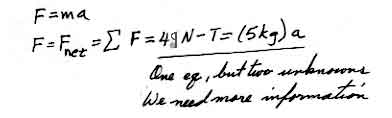 F=ma
F=F_net=∑ F=49N-T=(5kg)a
One eq, but two unknowns
We need more information